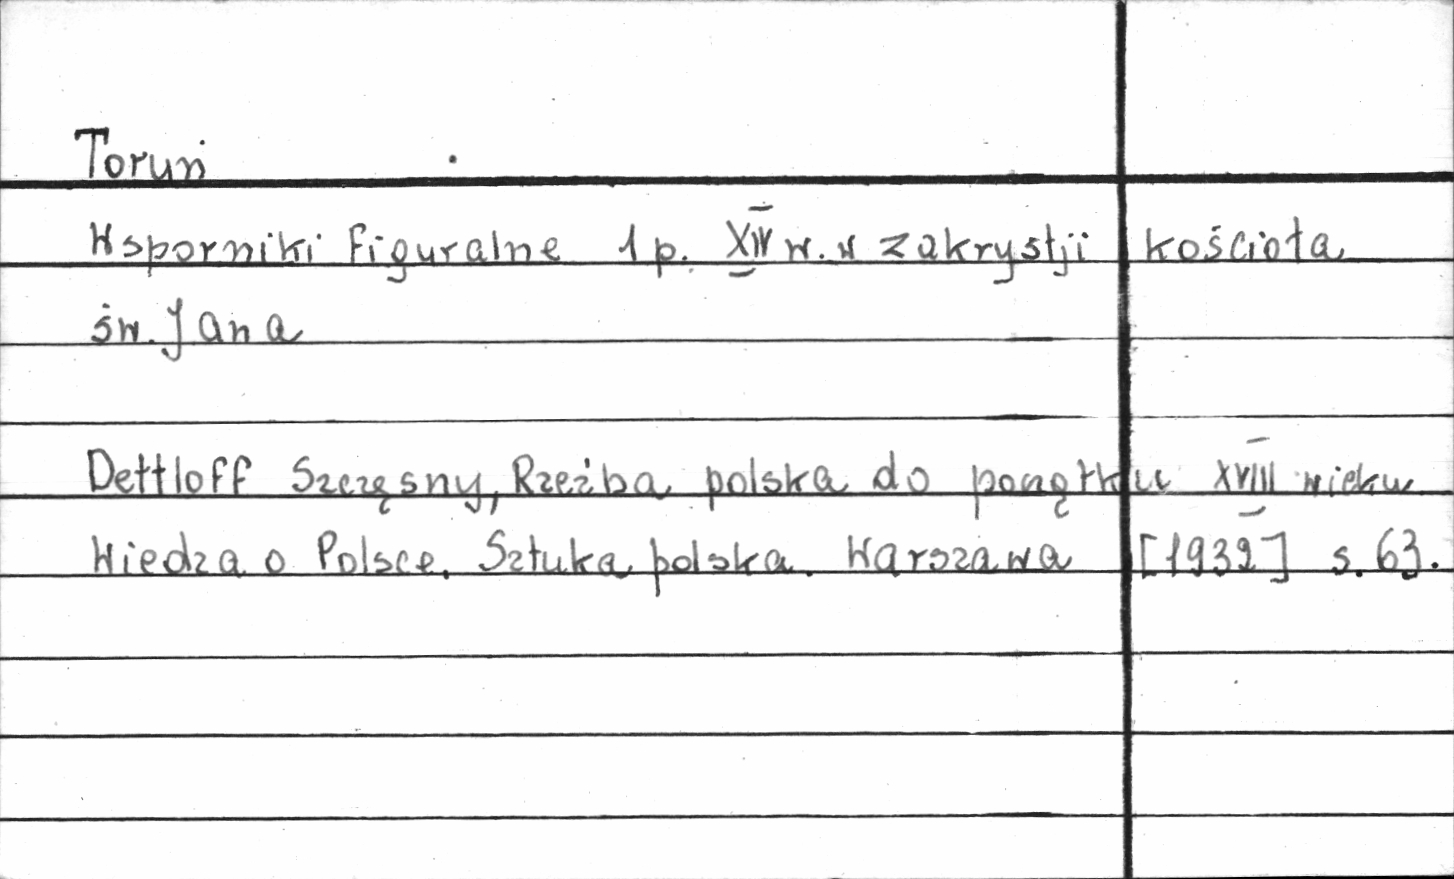 Toruń
Wsporniki figuralne 1 p. XIV w. w zakrystji kościoła
św. Jana
Dettloff Szczęsny, Rzeźba polska do początku XVIII wieku
Wiedza o Polsce. Sztuka polska. Warszawa [1932] s. 63.